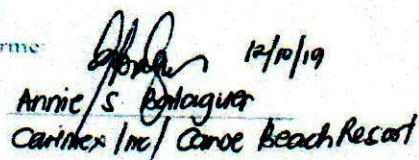 12/10/19
Annie S Balaguer
Carimex Inc/ Canoe Beach Resort